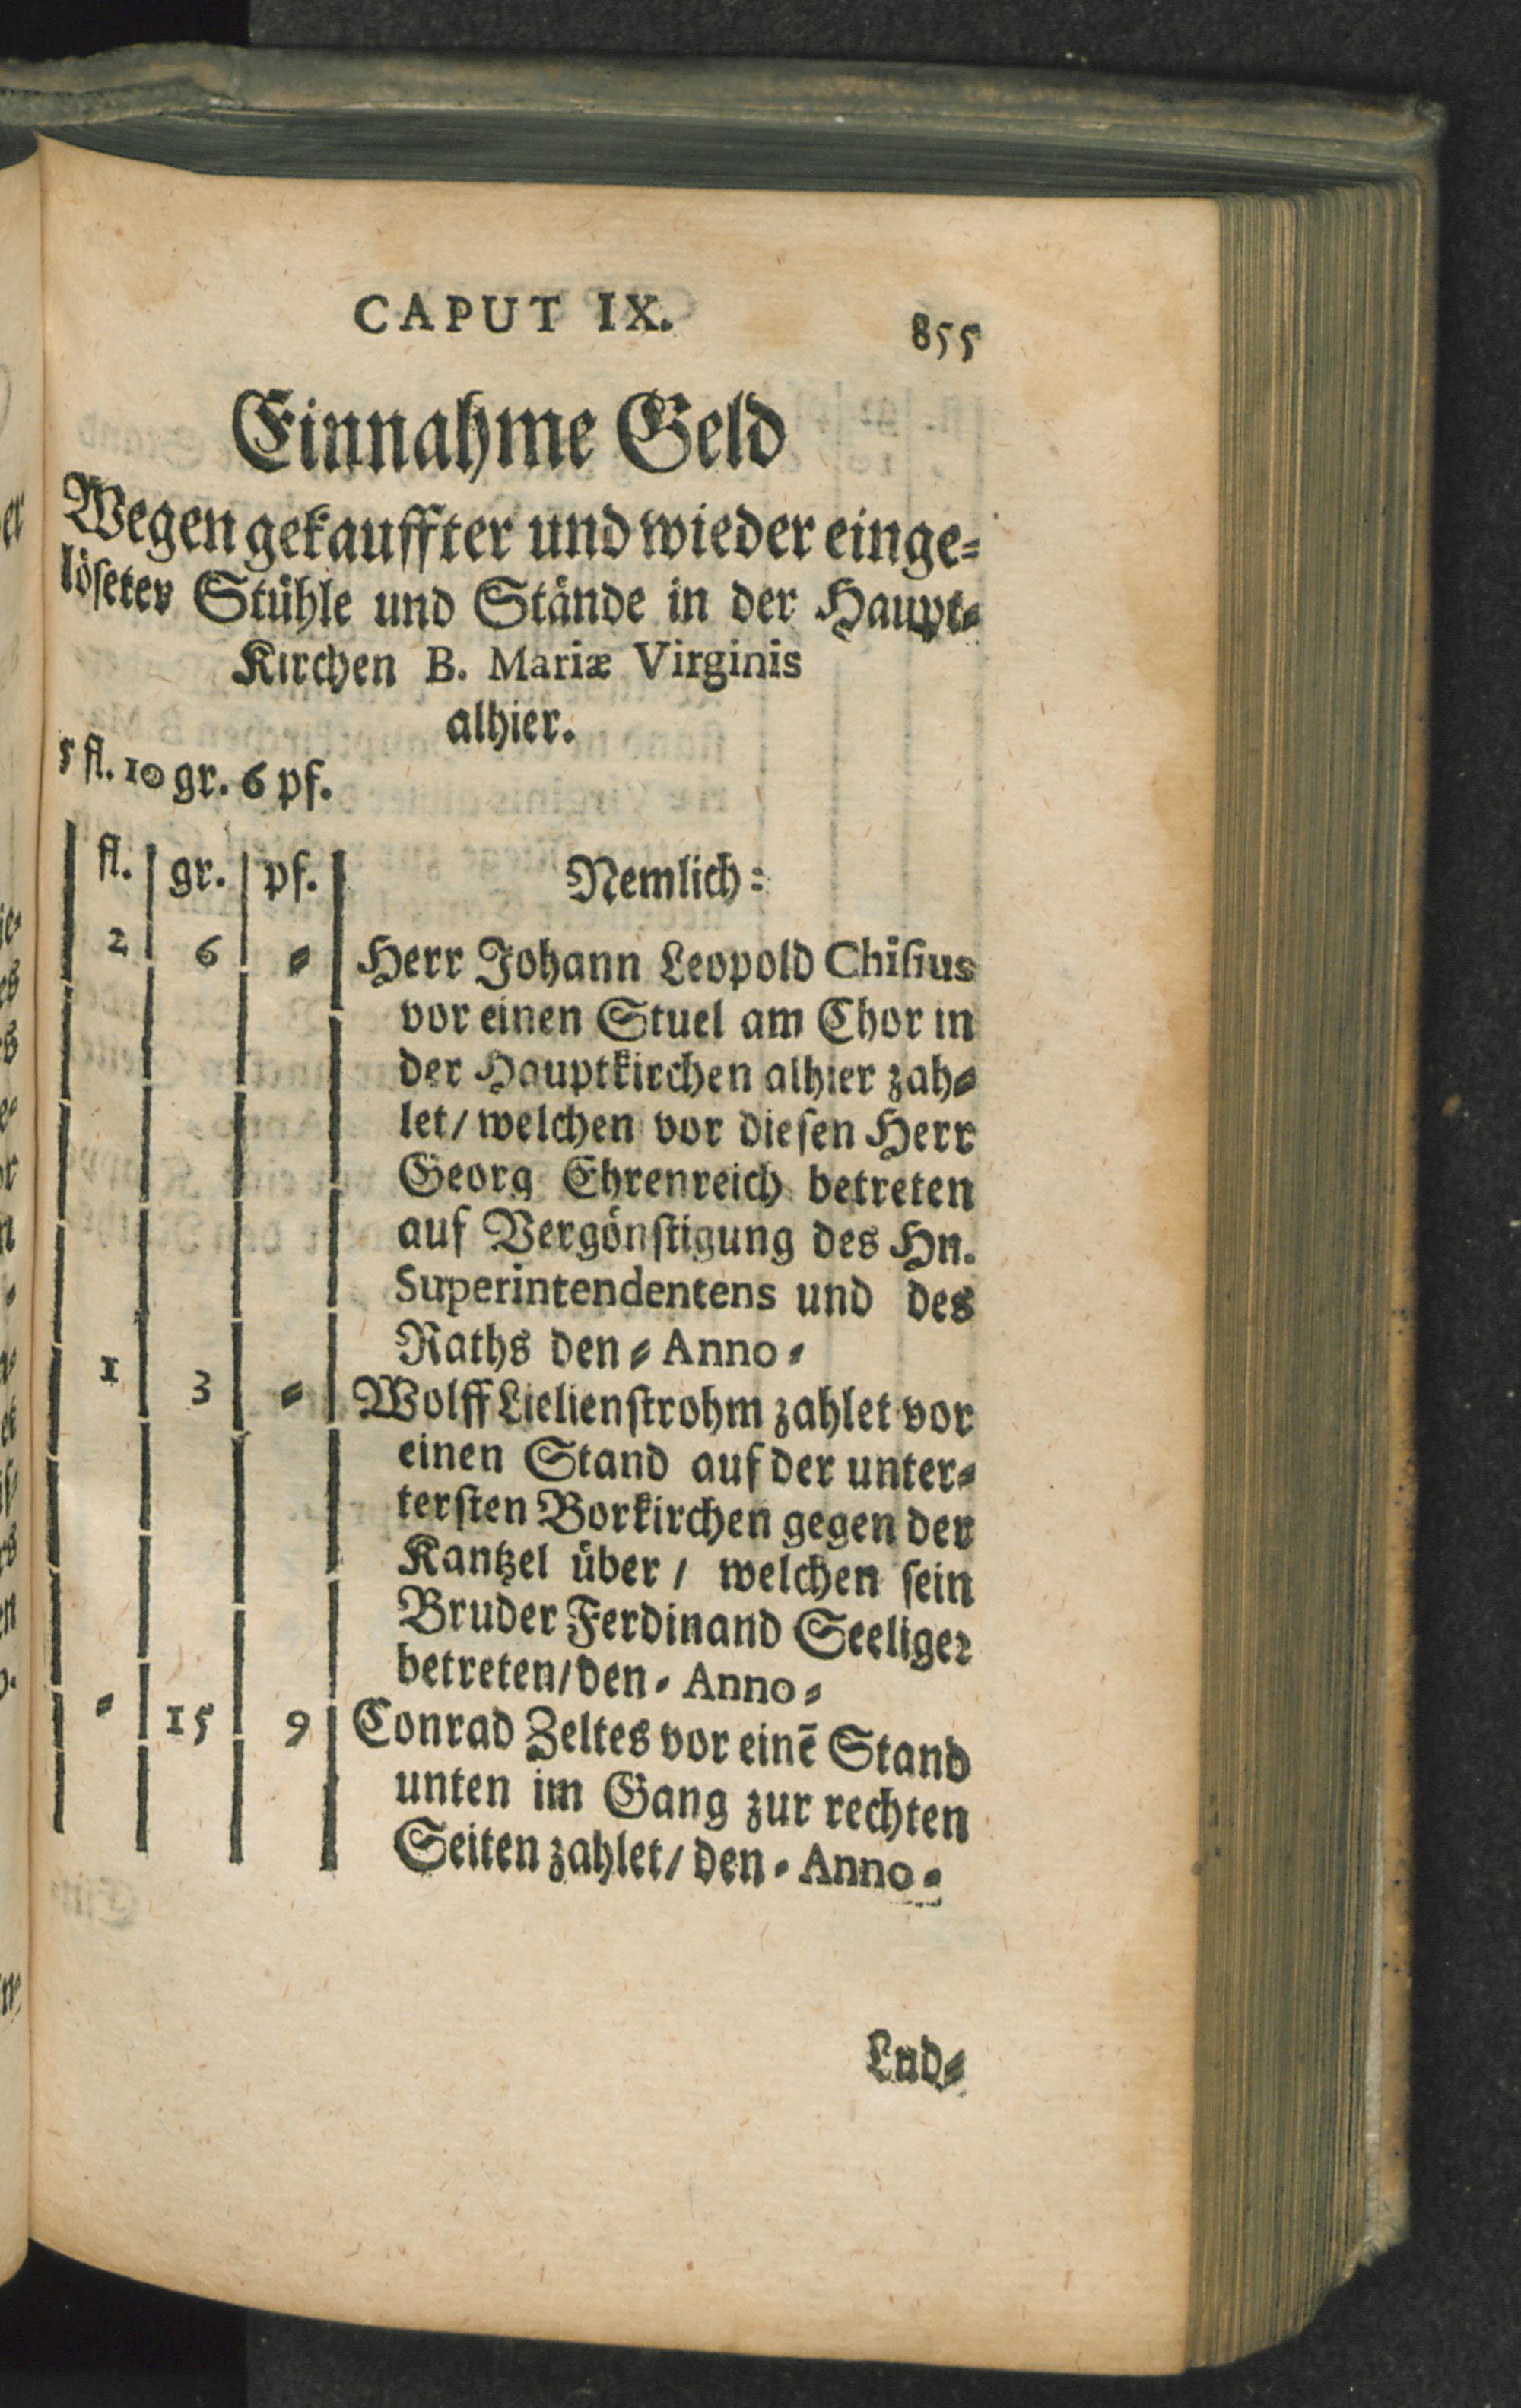 CAPUT IX. 855
Einnahme Geld
Wegen gekauffter und wieder einge⸗
löseter Stühle und Stände in der Haupt⸗
Kirchen B. Mariæ Virginis
alhier.
5 fl. 10 gr. 6 pf.
fl. gr. pf. Nemlich:
2 6 ⸗ Herr Johann Leopold Chisius
vor einen Stuel am Chor in
der Hauptkirchen alhier zah⸗
let/ welchen vor diesen Herr
Georg Ehrenreich betreten
auf Vergönstigung des Hn.
Superintendentens und des
Raths den ⸗ Anno ⸗
1 3 ⸗ Wolff Lielienstrohm zahlet vor
einen Stand auf der unter⸗
tersten Borkirchen gegen der
Kantzel über / welchen sein
Bruder Ferdinand Seeliger
betreten/ den ⸗ Anno ⸗
⸗ 15 9 Conrad Zeltes vor einē Stand
unten im Gang zur rechten
Seiten zahlet/ den ⸗ Anno ⸗
Lud⸗